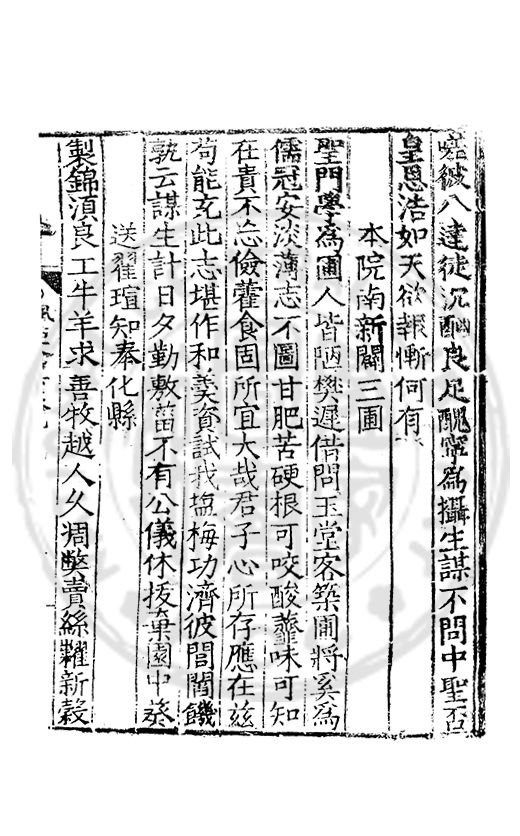 嗟彼八達徒沉酗良足醜寧爲攝生謀不問中聖否
皇恩浩如天欲報慚何有
本院南新闢三圃
聖門學爲圃人皆陋樊遲借問玉堂客築圃將奚爲
儒冠安淡薄志不圖甘肥苦硬根可咬酸虀味可知
在貴不忘儉藿食固所宜大哉君子心所存應在兹
苟能充此志堪作和羹資試我塩梅功濟彼閭閻饑
孰云謀生計日夕勤敷菑不有公儀休拔葉園中葵
送翟瑄知奉化縣
製錦湏良工牛羊求善牧越人久凋弊賣絲糴新穀